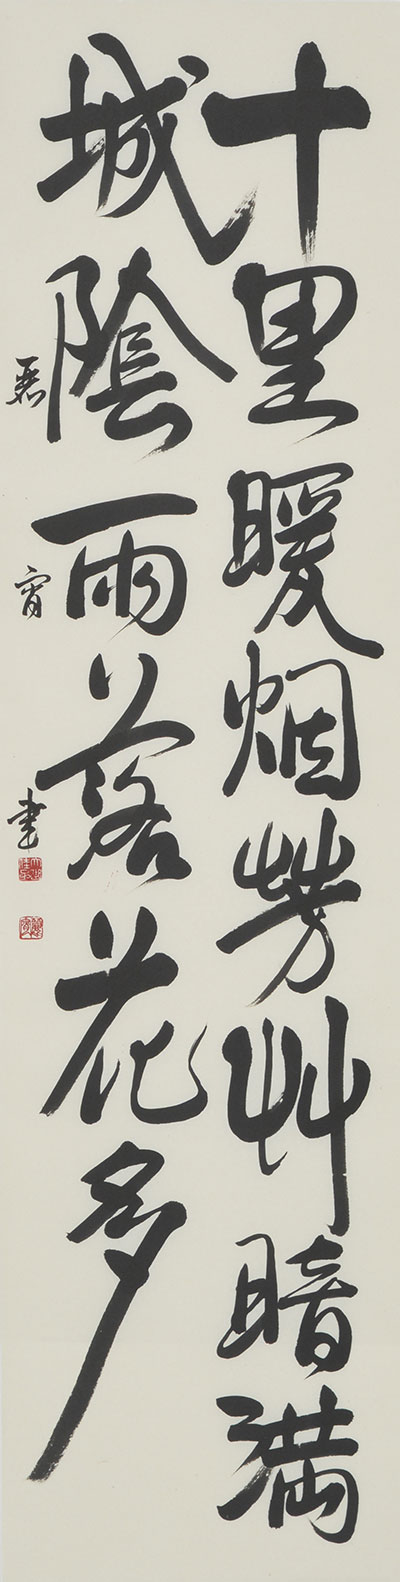 十里暖烟芳艸暗満
城陰雨落花多
宵書